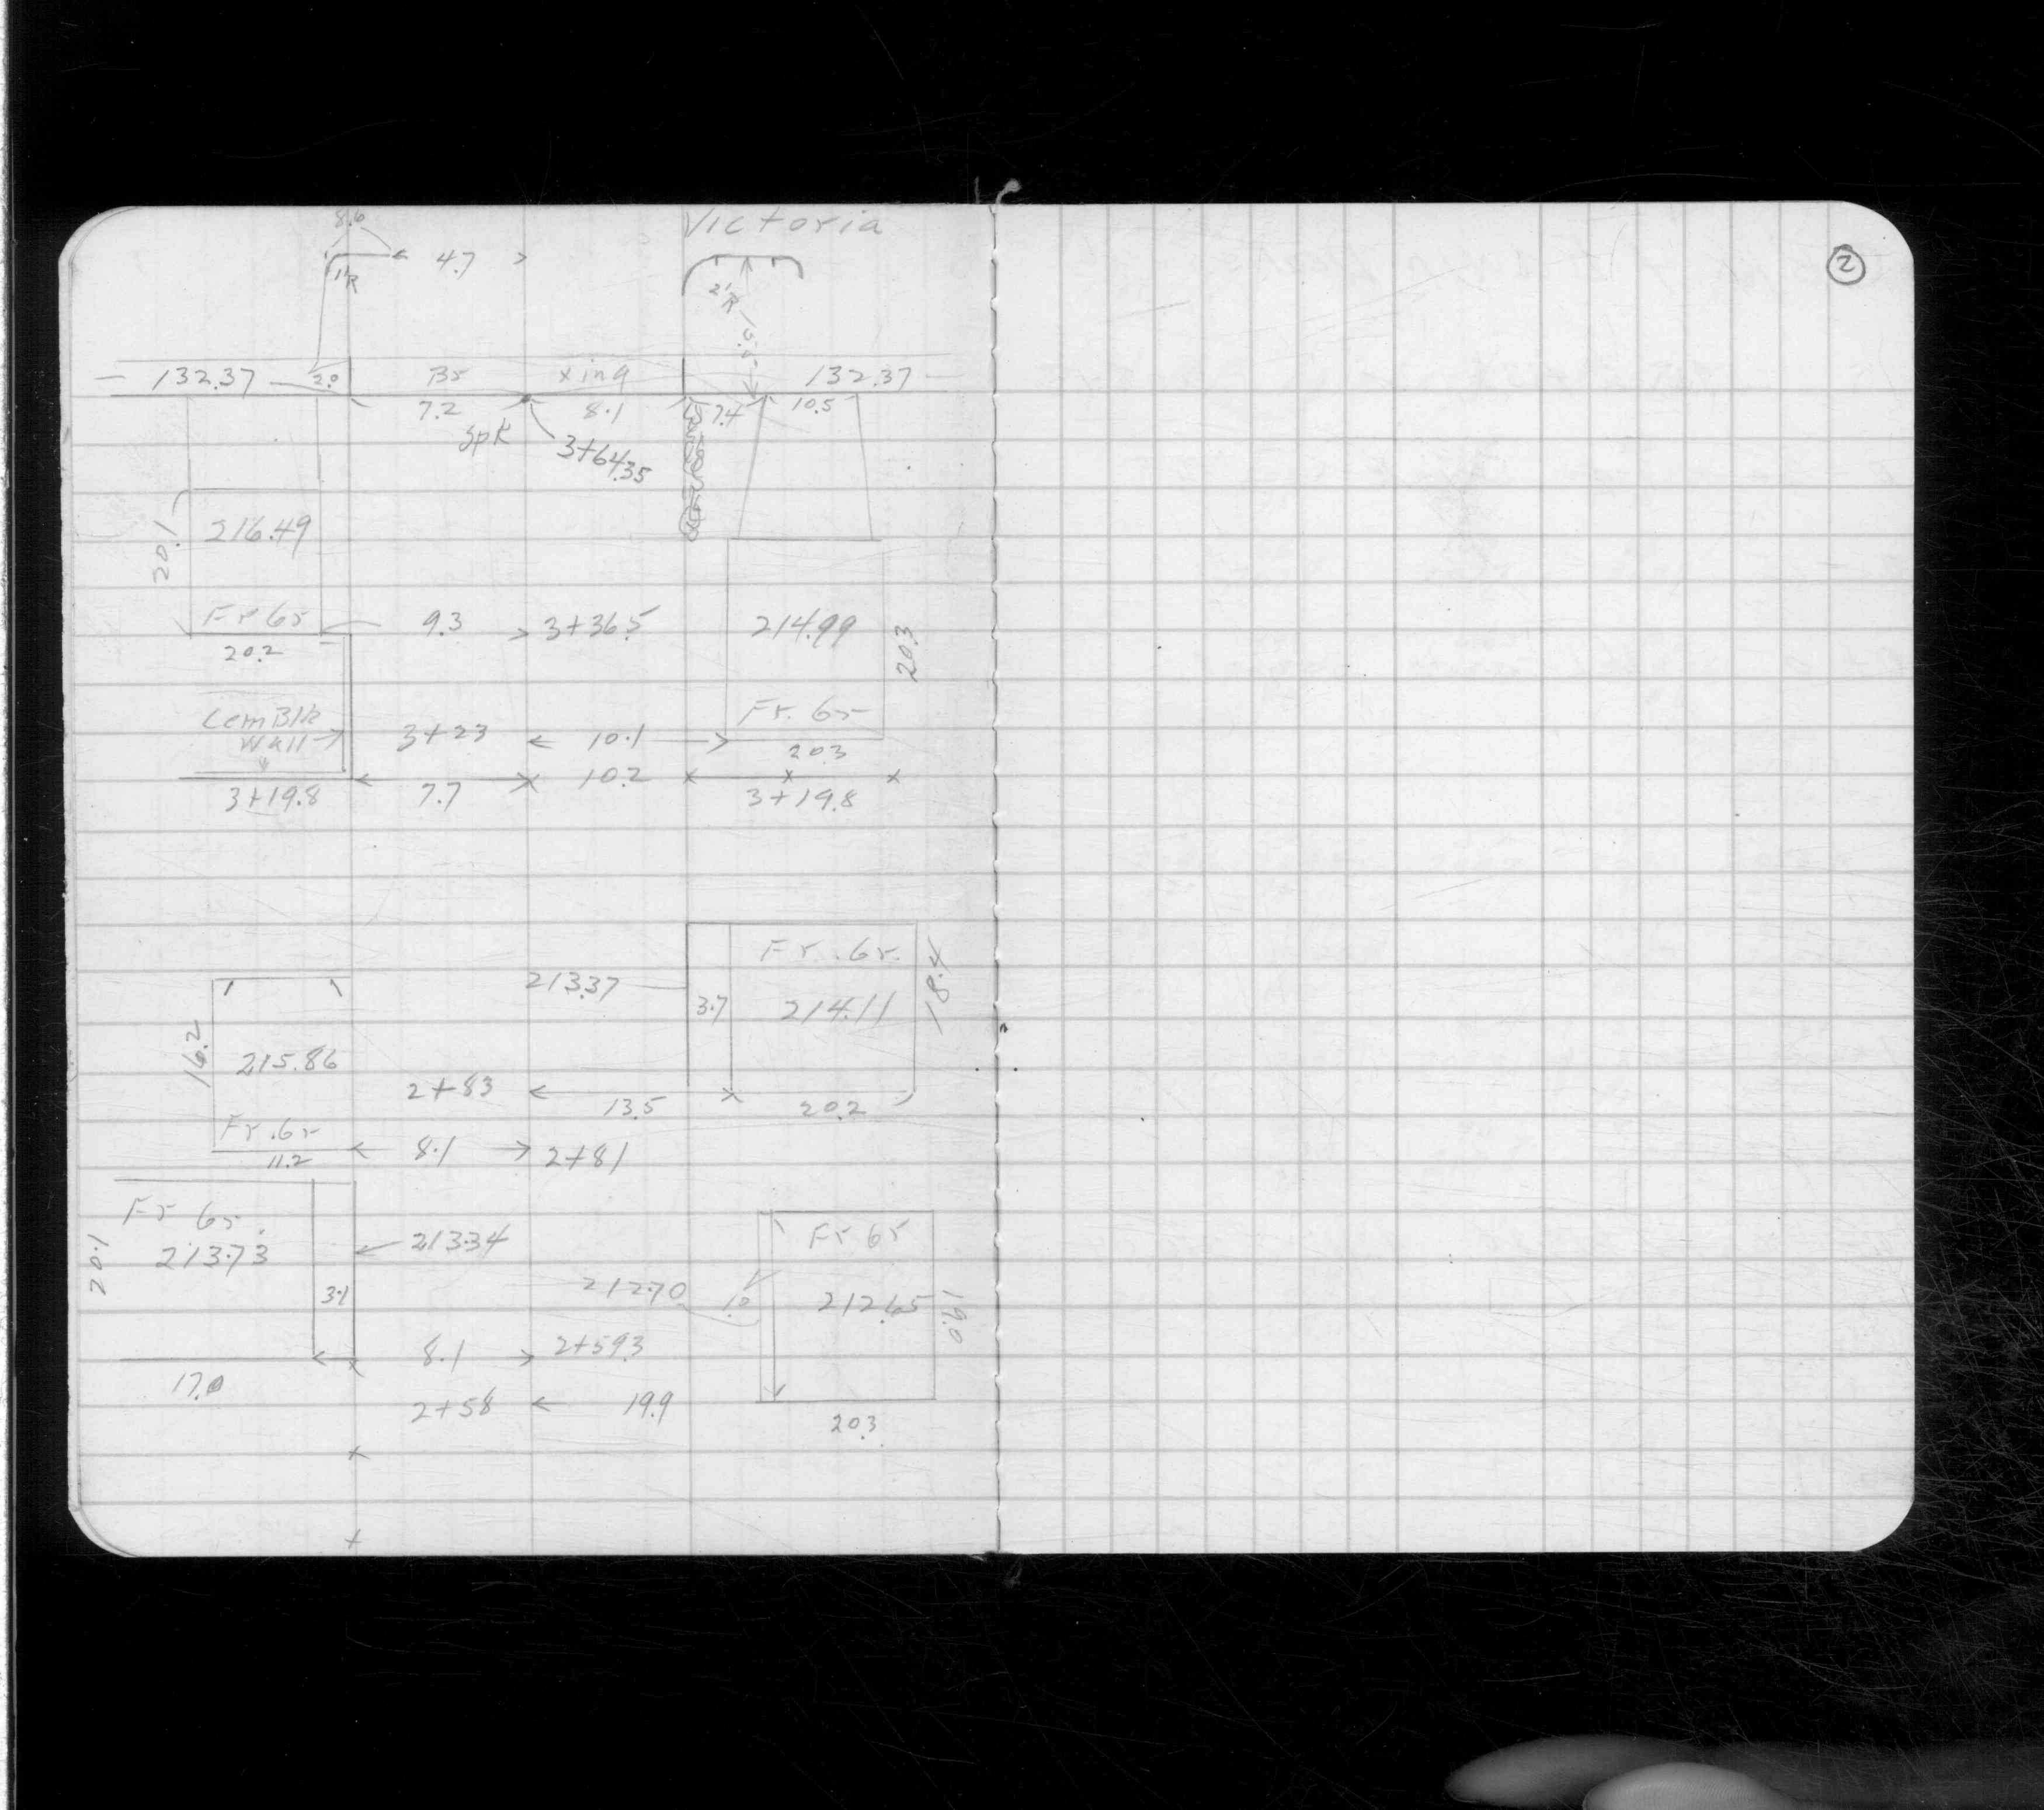 8.6 Victoria
②
4.7
1'R 2'R
132.37 2.0 Br xing 132.37
7.2 8.1 7.4 10.5
Spk 3+64.35
20.1 216.49
Fr Gr 9.3 3+36.5 214.99 20.3
20.2
Cem Blk
Wall 3+23 10.1 Fr. Gr
20.3
7.7 10.2
3+19.8 3+19.8
Fr. Gr.
213.37 3.7 214.11 18.4
16.2 215.86
2+83 13.5 20.2
Fr. Gr
11.2 8.1 2+81
Fr Gr. Fr Gr
20.1 213.73 213.34
3.1 212.70 1.0 212.65 19.0
8.1 2+59.3
17.0 2+58 19.9
20.3